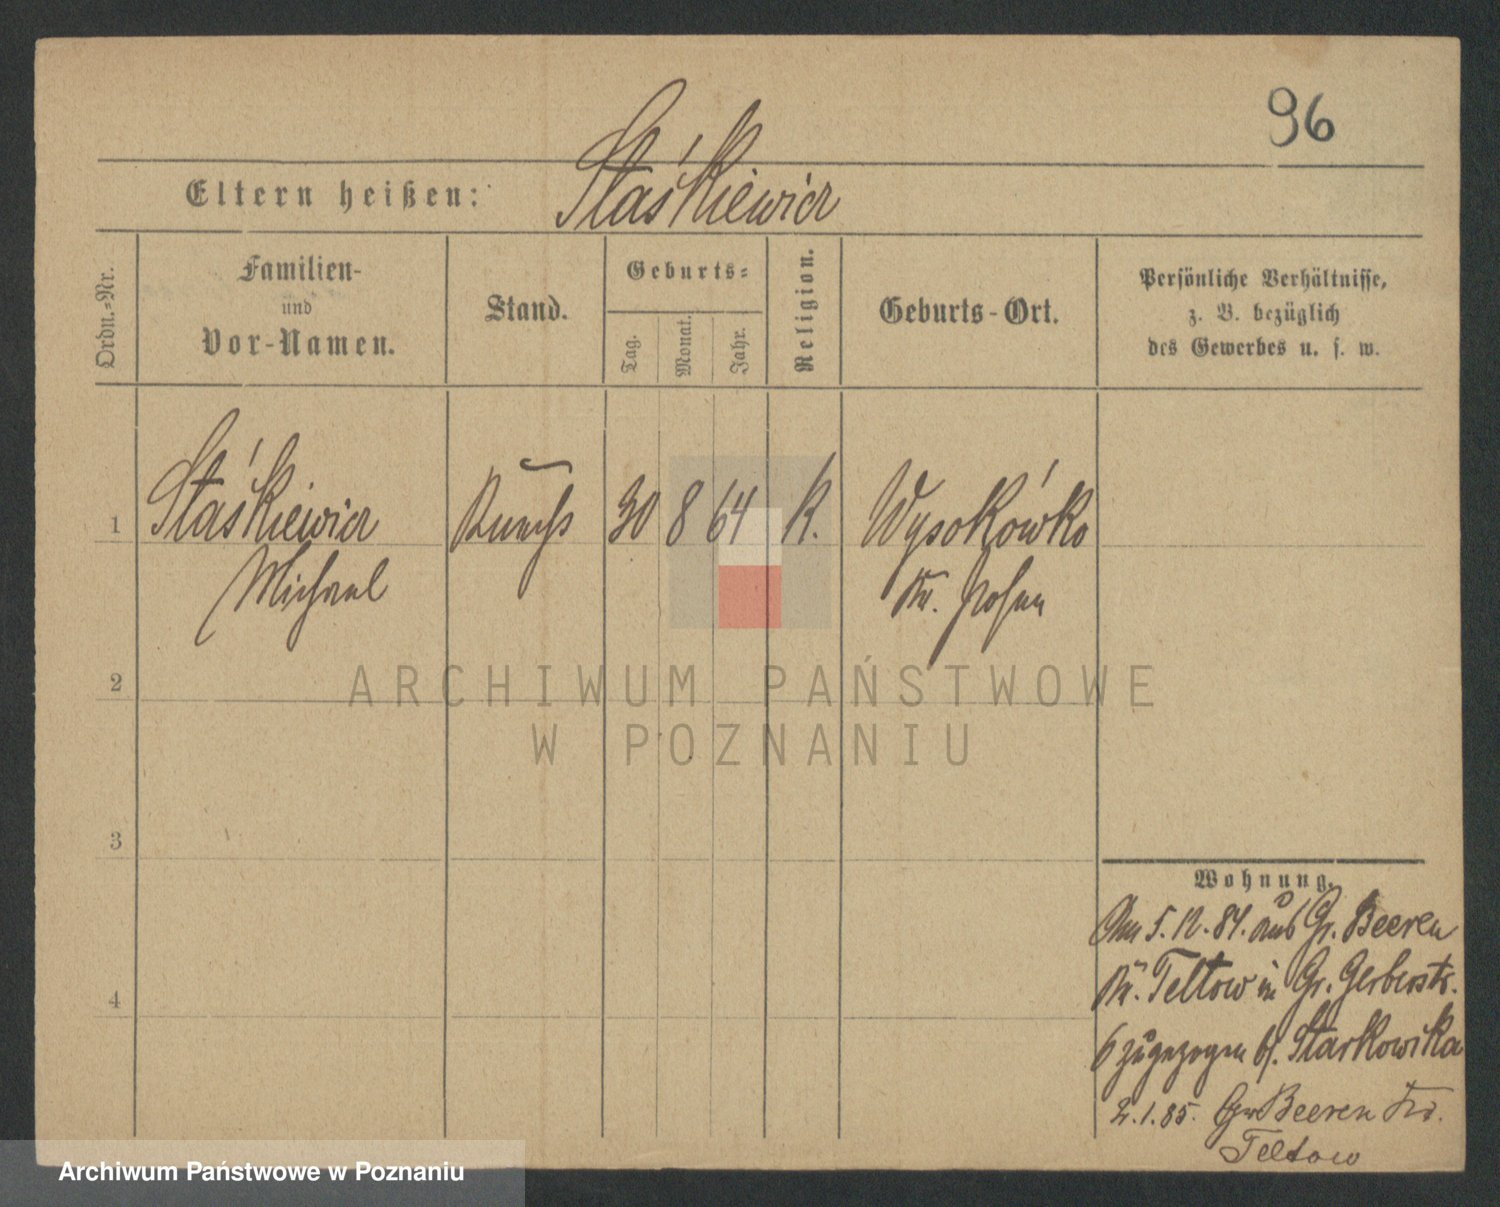 96
Eltern heißen: Staśkiewicz
Ordn.-Nr.
Familien-
und
Vor-Namen.
Stand.
Geburts-
Tag.
Monat.
Jahr.
Religion.
Geburts-Ort.
Persönliche Verhältnisse,
z. B. bezüglich
des Gewerbes u. s. w.
1 Staśkiewicz Knecht 30 8 64 K. Wysokówko
Michael Kr. Posen
2
3
4
Wohnung.
Am 5.12.84. aus Gr. Beeren
Kr. Teltow in Gr. Gerberstr.
6 zugezogen b/. Starkowska
2.1.85. Gr Beeren Krs.
Teltow
ARCHIWUM PAŃSTWOWE
W POZNANIU
Archiwum Państwowe w Poznaniu